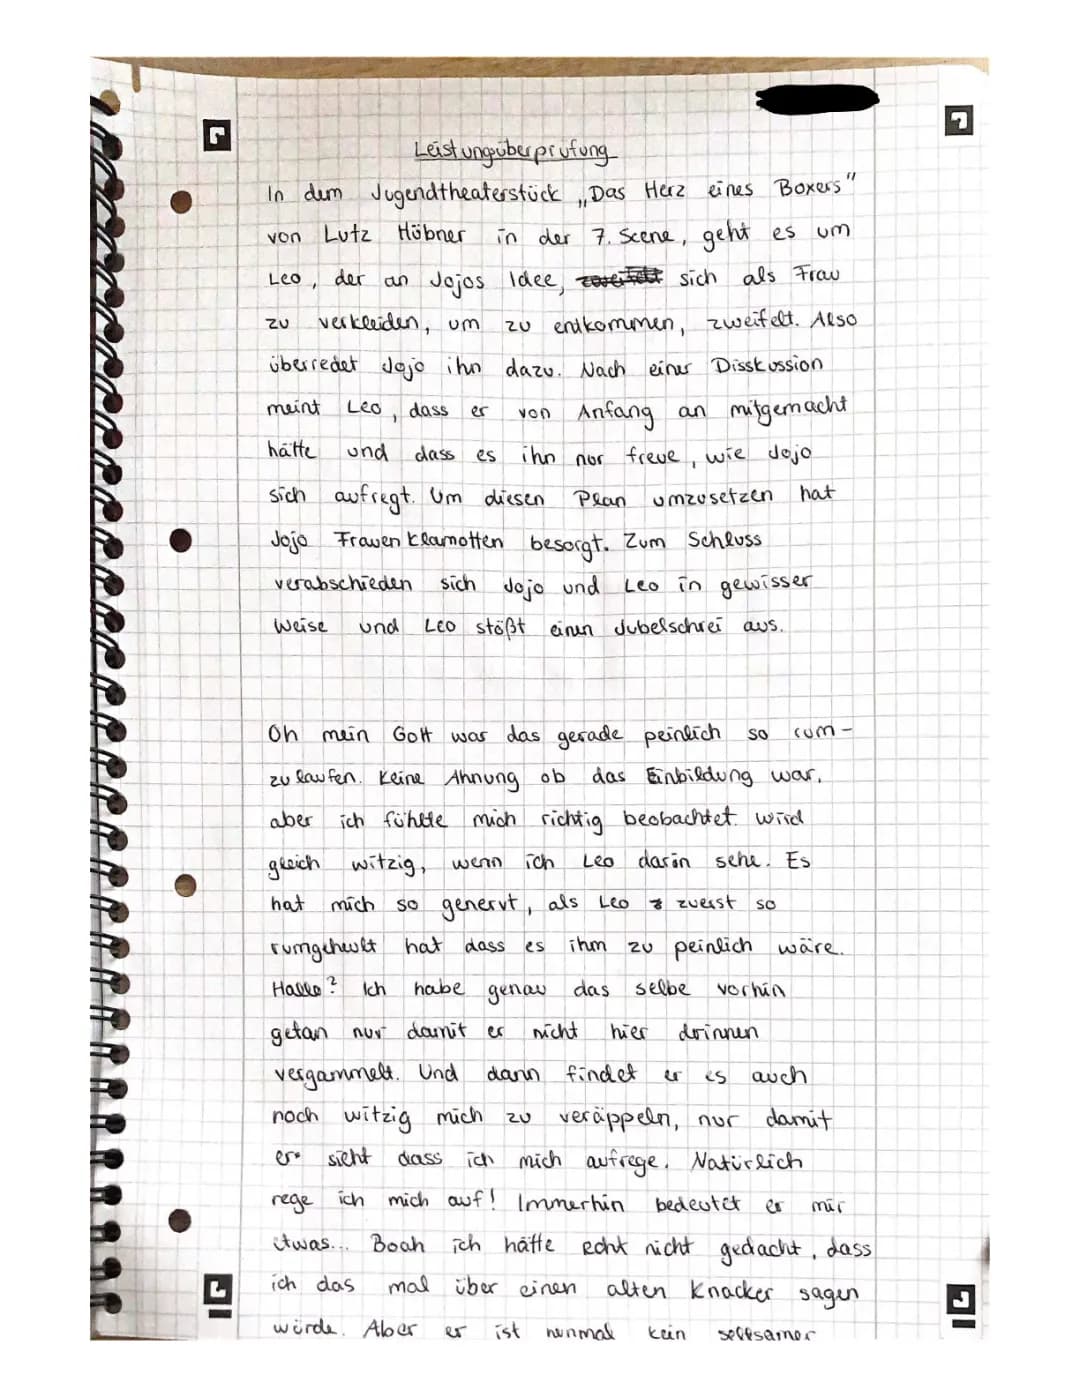 Leistungsüberprüfung
In dem Jugendtheaterstück „Das Herz eines Boxers"
von Lutz Hübner in der 7. Scene, geht es um
Leo, der an Jojos Idee, sich als Frau
zu verkleiden, um zu entkommen, zweifelt. Also
überredet Jojo ihn dazu. Nach einer Disskussion
meint Leo, dass er von Anfang an mitgemacht
hätte und dass es ihn nur freue, wie Jojo
sich aufregt. Um diesen Plan umzusetzen hat
Jojo Frauen klamotten besorgt. Zum Schluss
verabschieden sich Jojo und Leo in gewisser
Weise und Leo stößt einen Jubelschrei aus.
Oh mein Gott war das gerade peinlich so rum-
zu laufen. Keine Ahnung ob das Einbildung war,
aber ich fühlte mich richtig beobachtet. Wird
gleich witzig, wenn ich Leo darin sehe. Es
hat mich so genervt, als Leo zuerst so
rumgeheult hat dass es ihm zu peinlich wäre.
Hallo? Ich habe genau das selbe vorhin
getan nur damit er nicht hier drinnen
vergammelt. Und dann findet er es auch
noch witzig mich zu veräppeln, nur damit
er sieht dass ich mich aufrege. Natürlich
rege ich mich auf! Immerhin bedeutet er mir
etwas... Boah ich hätte echt nicht gedacht, dass
ich das mal über einen alten Knacker sagen
würde. Aber er ist nunmal kein seltsamer